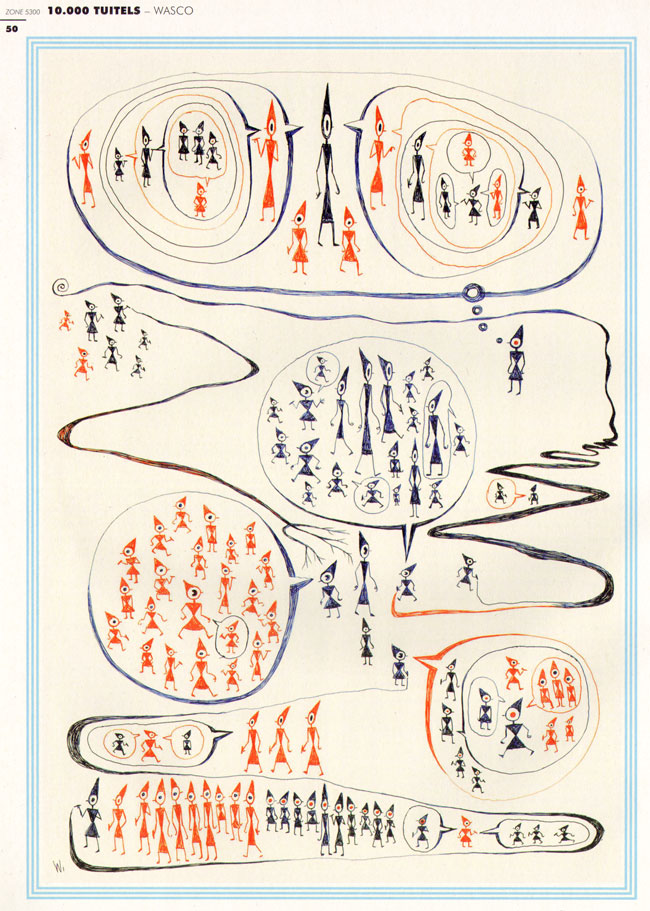 ZONE 5300 10.000 TUITELS – WASCO
50
W.